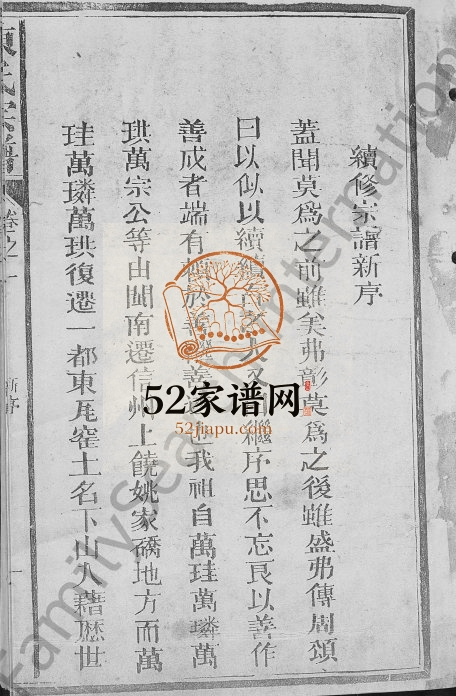 續修宗譜新序
蓋聞莫為之前雖美弗彰莫為之後雖盛弗傳周頌
曰以似以續續 繼序思不忘良以善作
善成者端有 我祖自萬珪萬璘萬
珙萬宗公等由閩南遷信州上饒姚家礄地方而萬
珪萬璘萬珙復遷一都東瓦窑土名下山人籍歷世
氏宗譜
卷之一
新序
一
52家谱网
52jiapu.com
FamilySearch International